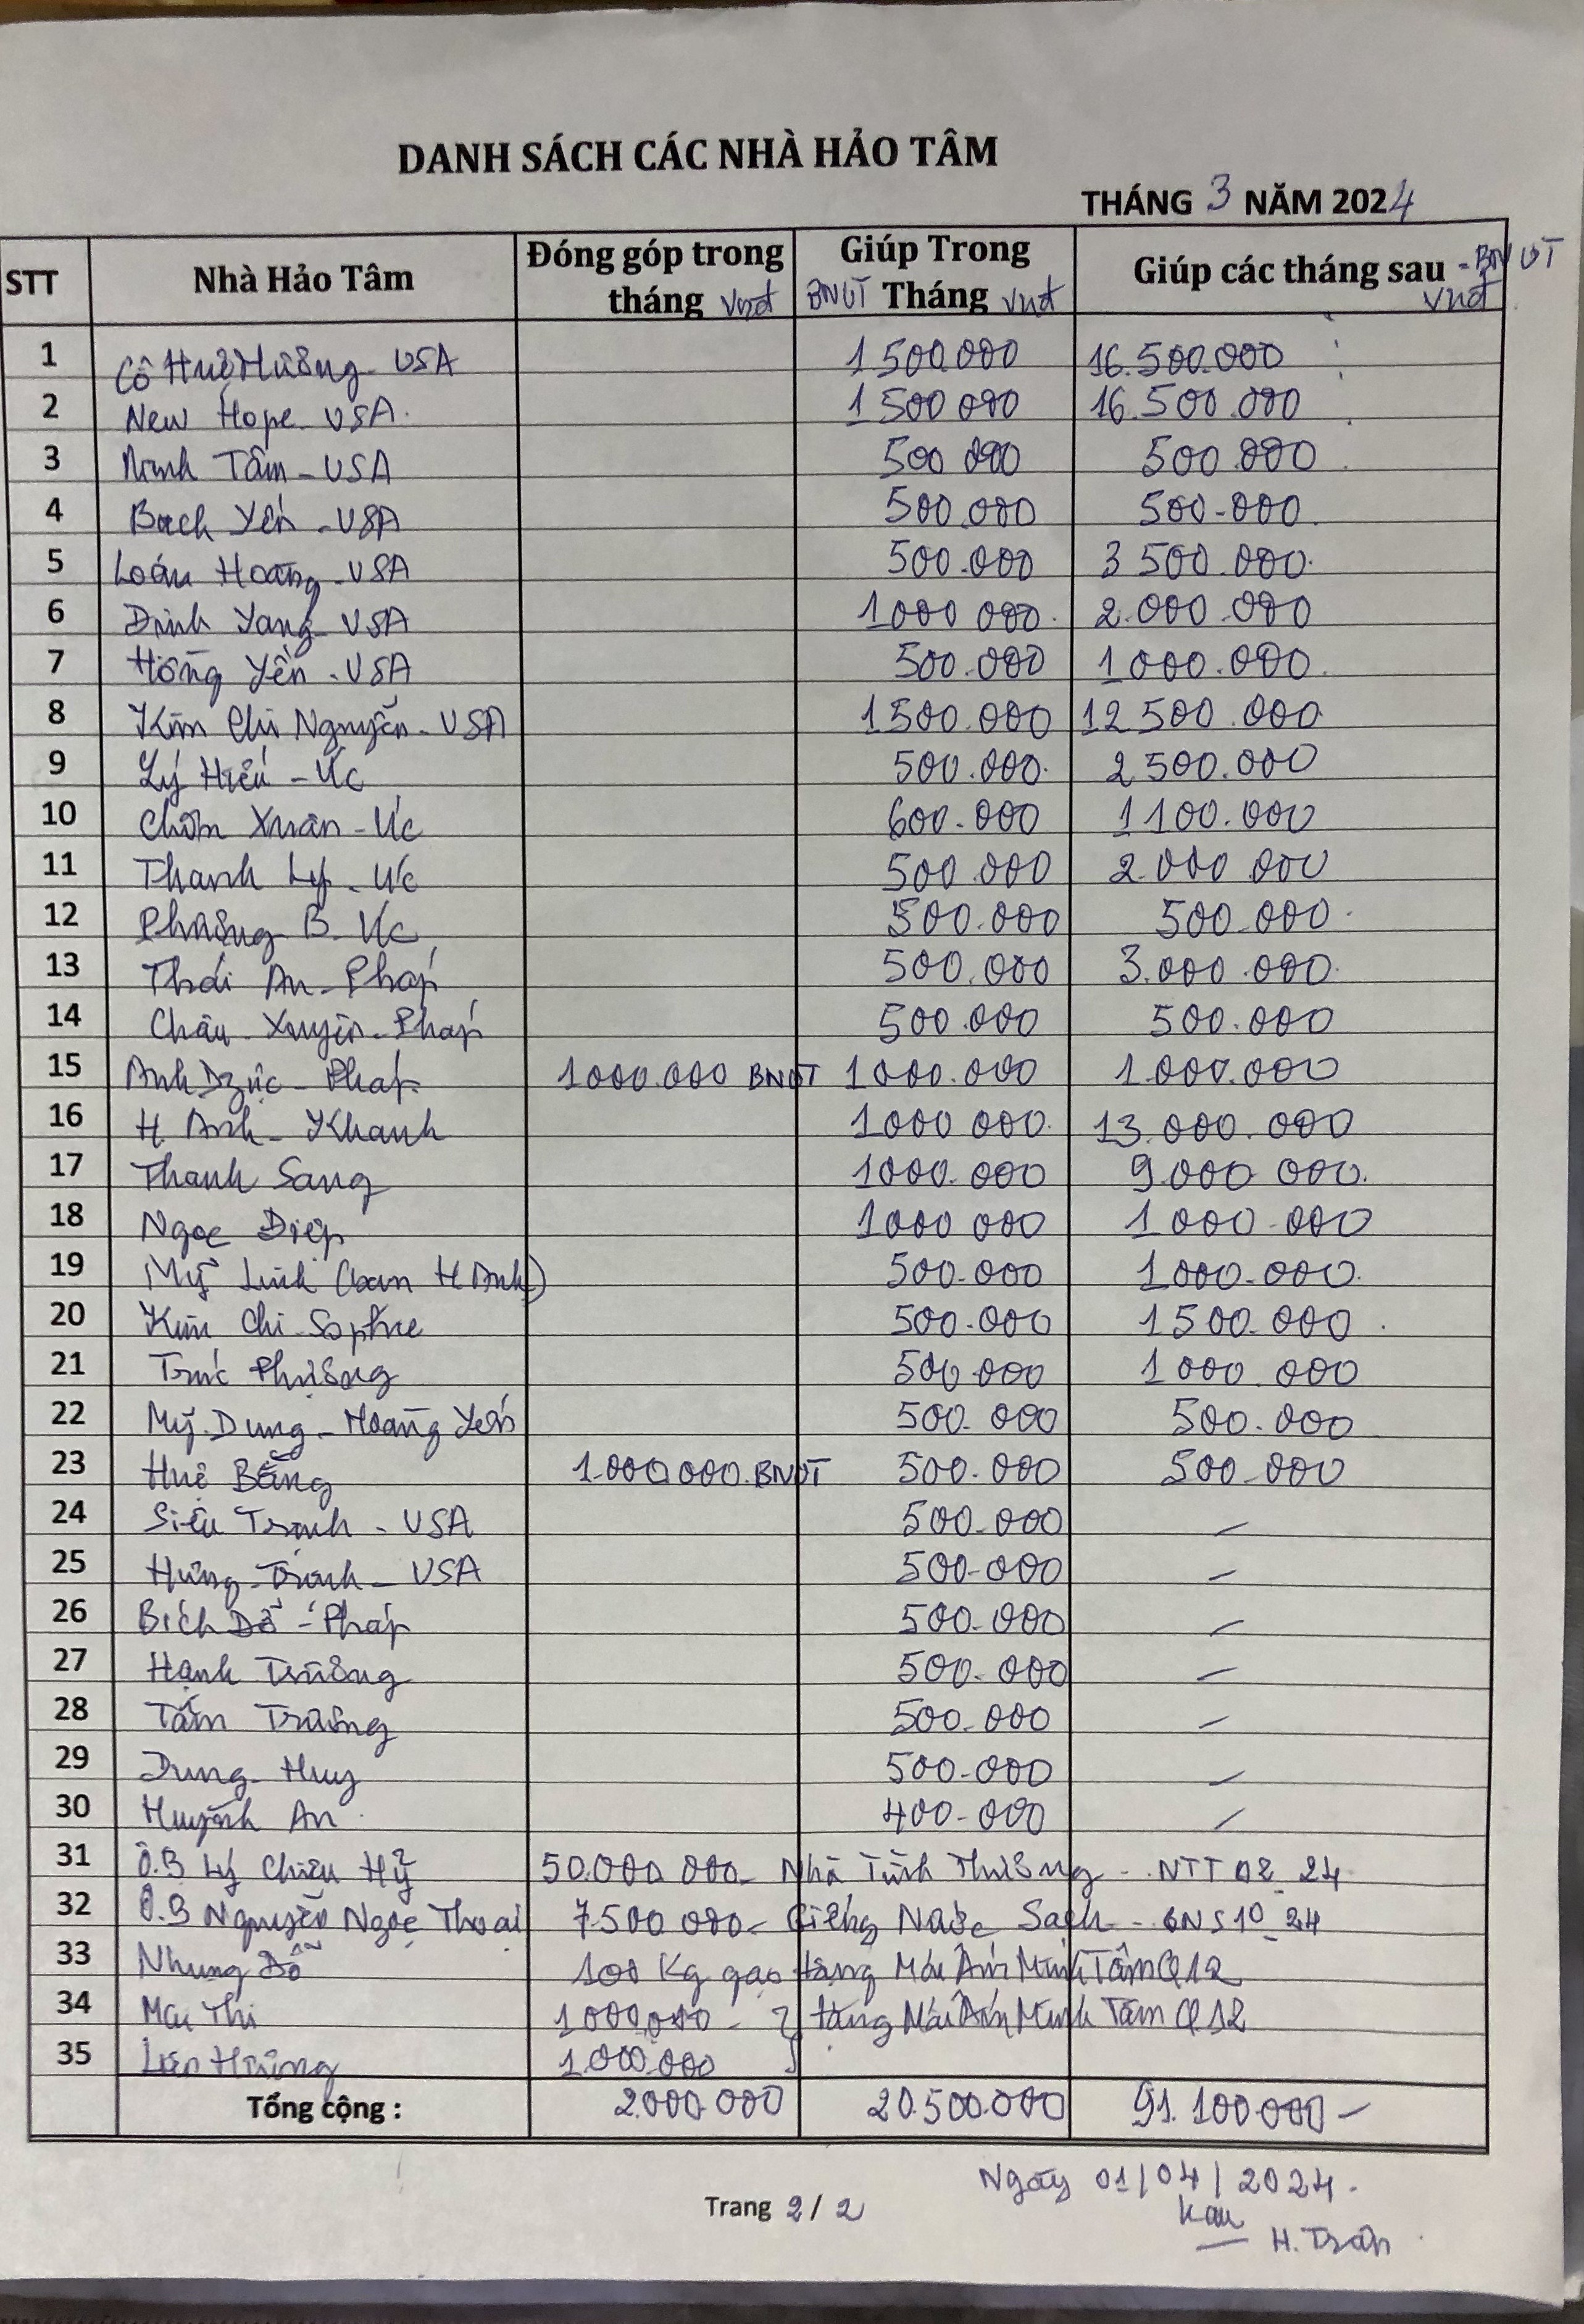 DANH SÁCH CÁC NHÀ HẢO TÂM
THÁNG 3 NĂM 2024
STT Nhà Hảo Tâm Đóng góp trong tháng vnđ BNUT Giúp Trong Tháng vnđ Giúp các tháng sau - BNUT vnđ
1 Cô Huệ Hương - USA 1 500.000 16.500.000
2 New Hope - USA. 1 500 000 16.500.000
3 Minh Tâm - USA 500 000 500.000
4 Bạch Yến - USA 500.000 500-000.
5 Loán Hoàng - USA 500.000 3 500.000.
6 Dinh Yang - USA 1000 000. 2.000.000
7 Hồng Yến - USA 500.000 1 000.000.
8 Kim Chi Nguyễn - USA 1500.000 12 500.000
9 Lý Hiếu - Úc 500.000. 2 500.000
10 Xuân - Úc 600.000 1 100.000
11 Thanh Ly - Úc 500.000 2.000 000
12 Phương B. Úc 500.000 500.000.
13 Thái An - Pháp 500.000 3.000.000.
14 Châu Xuyên - Pháp 500.000 500.000
15 Anh Dzực - Pháp. 1000.000 BNUT 1000.000 1.000.000
16 H Anh - Khanh 1000 000. 13.000.000
17 Thanh Sang 1000.000 9.000 000.
18 Ngọc Diệp 1000 000 1 000-000
19 Mỹ Linh (bạn H Anh) 500-000 1 000-000.
20 Kim Chi - Sophie 500-000 1 500.000.
21 Trúc Phương 500.000 1 000.000
22 Mỹ Dung - Hoàng Yến 500.000 500.000
23 Huê Bằng 1.000.000.BNUT 500.000 500.000
24 Siêu Trịnh - USA 500-000 -
25 Hưng Trịnh - USA 500-000 -
26 Bích Đỗ - Pháp 500-000 -
27 Hạnh Trương 500-000 -
28 Tấm Trương 500-000 -
29 Dung - Huy 500-000 -
30 Huỳnh An. 400-000 -
31 Ô.B Lý Chiêu Hỷ 50.000.000- Nhà Tình Thương - NTT 02_24
32 Ô.B Nguyễn Ngọc Thoại 7.500 000- Giếng Nước Sạch - GNS10_24
33 Nhung Đỗ 100 Kg gạo tặng Mái Ấm Minh Tâm Q12
34 Thi 1000,000 - } tặng Mái Ấm Minh Tâm Q12
35 Liên Hương 1.000.000
Tổng cộng : 2000.000 20.500.000 91.100.000-
Ngày 01/04/2024.
Trang 2/2
H. Trân